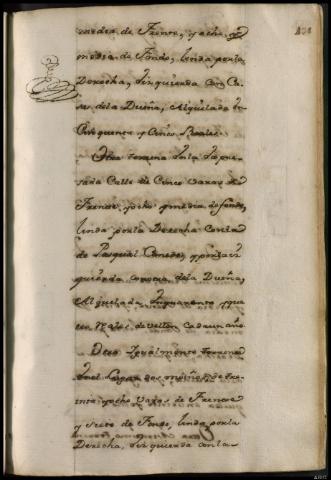 media de Frente, y ocho, y
media de Fondo, linda por la
Derecha, é Izquierda con Ca-
sas de la Dueña, Alquilada en
Cinquenta y Cinco Reales
Otra terrena en la expre-
sada Calle de Cinco Varas de
Frente y ocho y media de fondo,
linda por la Derecha con la
de Pasqual Conede, y por la iz-
quierda con otra de la Dueña,
Alquilada en quarenta y qua-
tro Reales de vellon Cada un año
Otra Igualmente terrena
en el Lugar de
y ocho Varas de Frente
y Siete de Fondo, linda por la
Derecha, é Izquierda con la